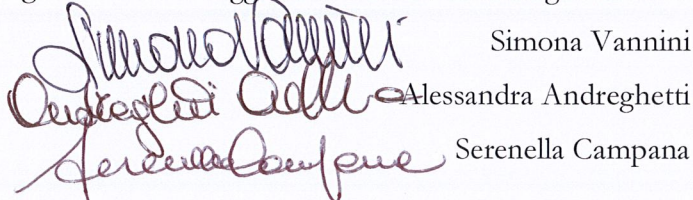 Simona Vannini Simona Vannini
Andreghetti Alessandra Andreghetti
Serenella Campana Serenella Campana